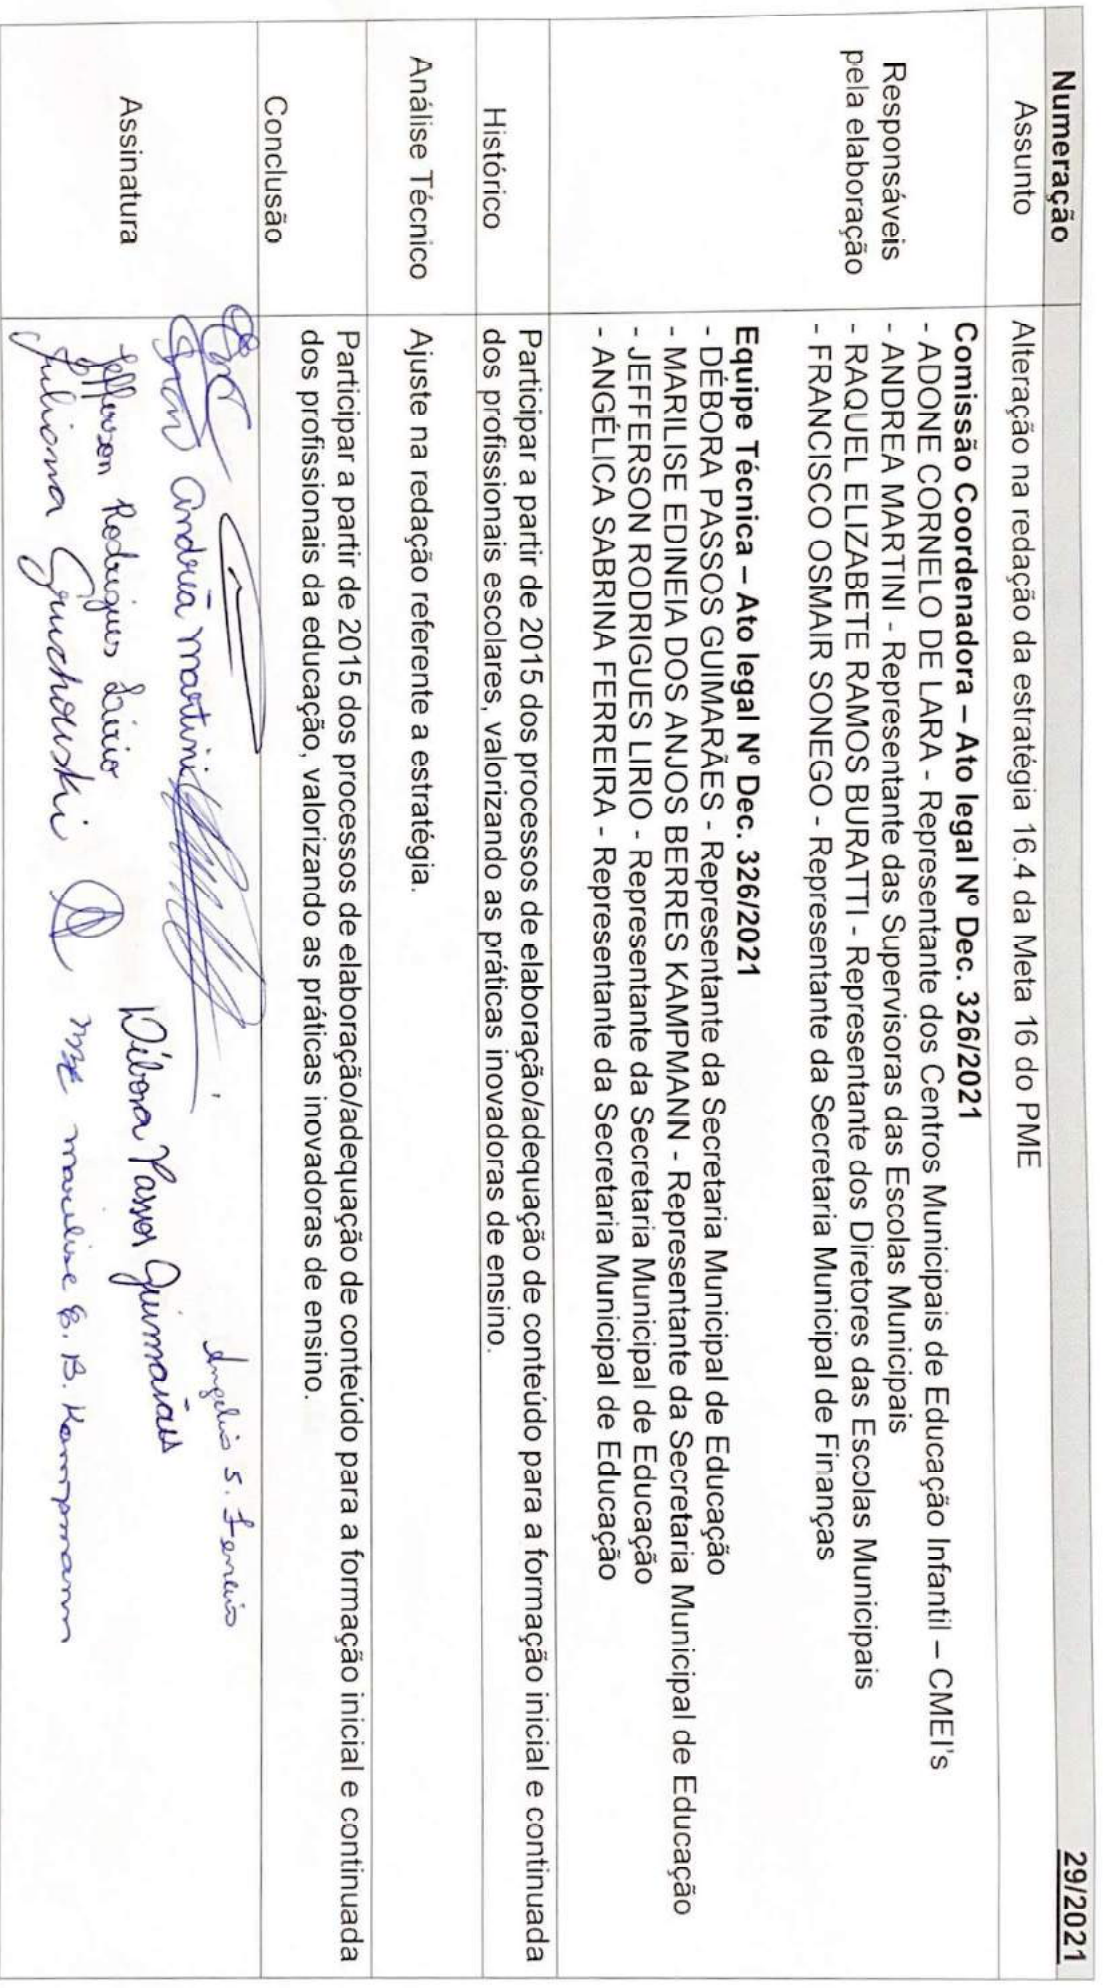 Numeração 29/2021
Assunto Alteração na redação da estratégia 16.4 da Meta 16 do PME
Responsáveis pela elaboração
Comissão Coordenadora – Ato legal Nº Dec. 326/2021
- ADONE CORNELO DE LARA - Representante dos Centros Municipais de Educação Infantil – CMEI's
- ANDREA MARTINI - Representante das Supervisoras das Escolas Municipais
- RAQUEL ELIZABETE RAMOS BURATTI - Representante dos Diretores das Escolas Municipais
- FRANCISCO OSMAIR SONEGO - Representante da Secretaria Municipal de Finanças
Equipe Técnica – Ato legal Nº Dec. 326/2021
- DÉBORA PASSOS GUIMARÃES - Representante da Secretaria Municipal de Educação
- MARILISE EDINEIA DOS ANJOS BERRES KAMPMANN - Representante da Secretaria Municipal de Educação
- JEFFERSON RODRIGUES LIRIO - Representante da Secretaria Municipal de Educação
- ANGÉLICA SABRINA FERREIRA - Representante da Secretaria Municipal de Educação
Histórico
Participar a partir de 2015 dos processos de elaboração/adequação de conteúdo para a formação inicial e continuada
dos profissionais escolares, valorizando as práticas inovadoras de ensino.
Análise Técnico Ajuste na redação referente a estratégia.
Conclusão
Participar a partir de 2015 dos processos de elaboração/adequação de conteúdo para a formação inicial e continuada
dos profissionais da educação, valorizando as práticas inovadoras de ensino.
Assinatura
Angélica S. Ferreira
Andréa Martini
Débora Passos Guimarães
Jefferson Rodrigues Lirio
Juliana Gruchouski
Marilise E. B. Kampmann